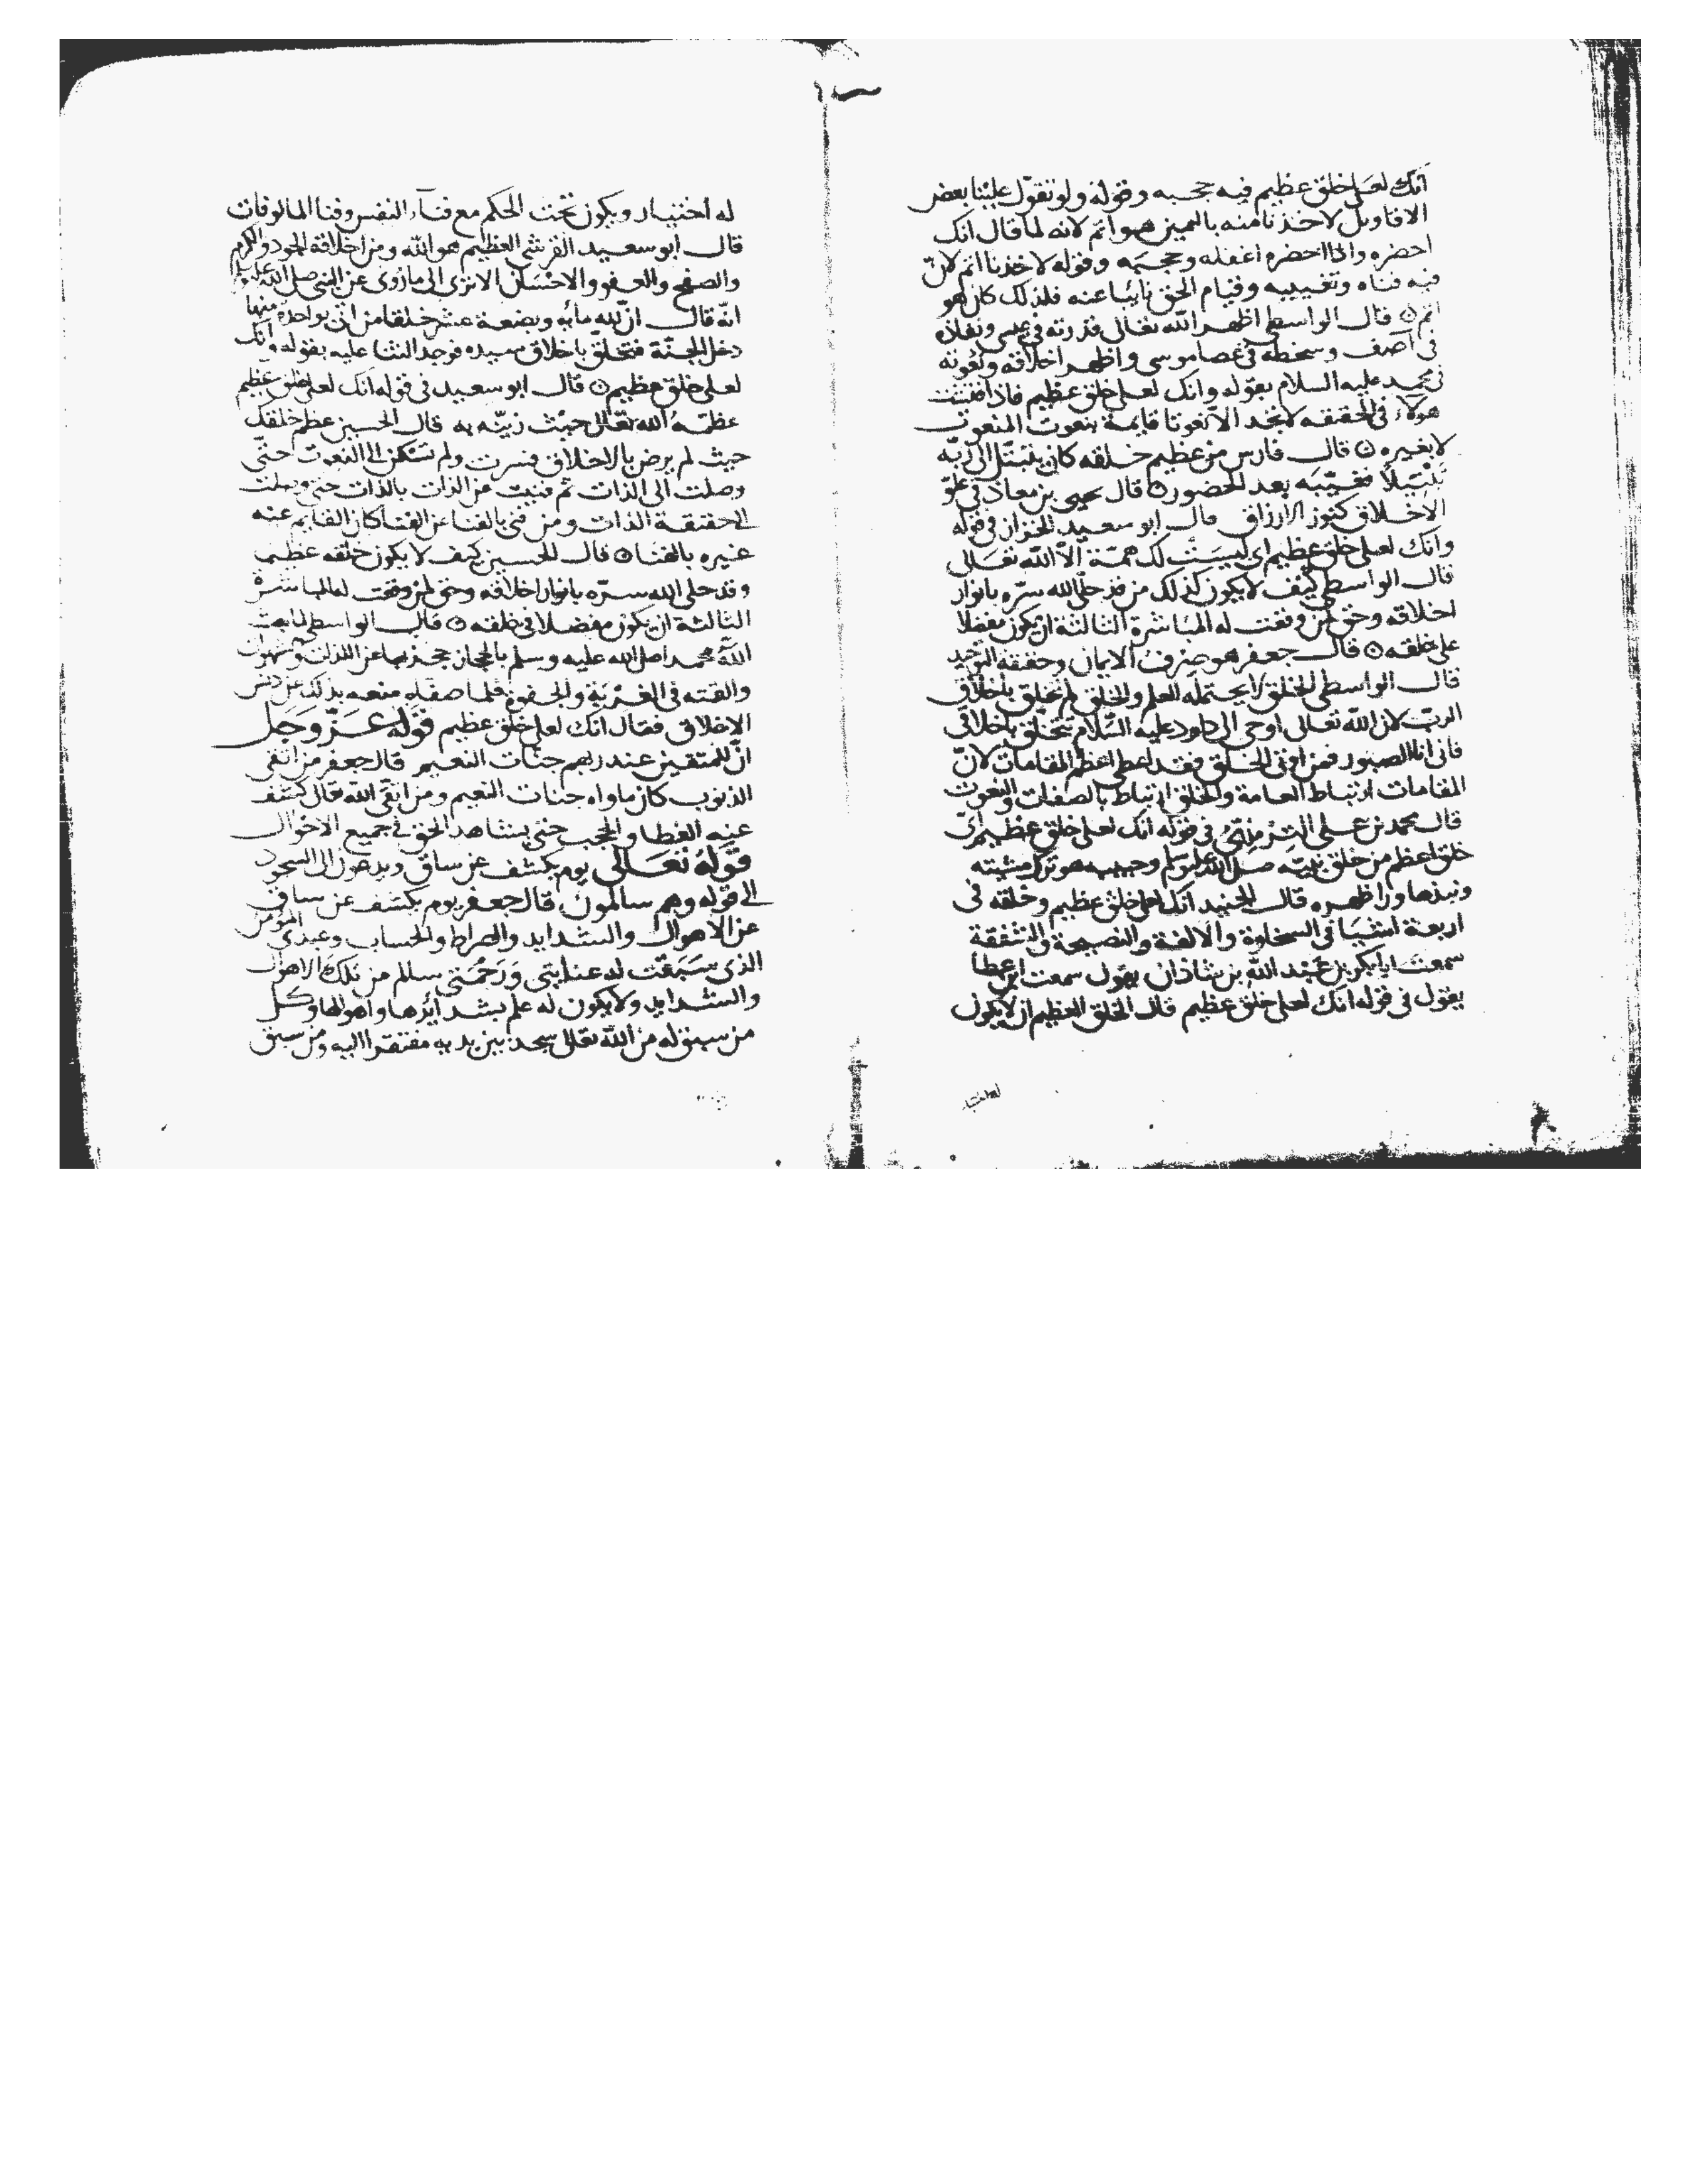 انك لعلى خلق عظيم فيه حجبه وقوله ولو تقول علينا بعض
الاقاويل لاخذنا منه باليمين هو اتم لانه لما قال انك
احضره واذا احضره اغفله وحجبه وقوله لاخذنا اتم لان
فيه فناه وتغييبه وقيام الحق نائبا عنه فلذلك كان هو
اتم قال الواسطى اظهر الله تعالى قدرته فى عيسى ونفاذه
فى آصف وسخطه فى عصا موسى واظهر اخلاقه ونعوته
فى محمد عليه السلام بقوله وانك لعلى خلق عظيم فاذا فتشت
هولاء فى الحقيقه لا تجد الا نعوتا قايمة بنعوت المنعوت
لا بغيره قال فارس من عظيم خلقه كان يتبتل الى ربه
تبتيلا فغيبه بعد الحضور قال يحيى بن معاذ فى علو
الاخلاق كنوز الارزاق قال ابو سعيد الخراز فى قوله
وانك لعلى خلق عظيم اى ليست لك همة الا الله تعالى
قال الواسطى كيف لا يكون كذلك من قد حلى الله سره بانوار
اخلاقه وحق لمن وقعت له المباشرة الثالثة ان يكون مفضلا
على خلقه قال جعفر هو صرف الايمان وحقيقة التوحيد
قال الواسطى الخلق لا يحتمله العلم والخلق لم تخلق باخلاق
الرب لان الله تعالى اوحى الى داود عليه السلام تتخلق باخلاقى
فانى انا الصبور فمن اوتى الخلق فقد اعطى اعظم المقامات لان
المقامات ارتباط العامة والخلق ارتباط بالصفات والنعوت
قال محمد بن على الترمذى فى قوله انك لعلى خلق عظيم اى
خلق اعظم من خلق نبيه صلى الله عليه وسلم وحبيبه هو ترك مشيئته
ونبذها ورا ظهره قال الجنيد انك لعلى خلق عظيم وخلقه فى
اربعة اشيا فى السخاوة والالفة والنصيحة والشفقة
سمعت ابا بكر بن عبد الله بن شاذان يقول سمعت ابن عطا
يقول فى قوله انك لعلى خلق عظيم قال الخلق العظيم ان لا يكون
له اختيار ويكون تحت الحكم مع فناء النفس وفنا المالوفات
قال ابو سعيد القرشى العظيم هو الله ومن اخلاقه الجود والكرم
والصفح والعفو والاحسان الا ترى الى ما روى عن النبى صلى الله عليه
انه قال ان لله مايه وبضعة عشر خلقا من اتى بواحدة منها
دخل الجنة فتخلق باخلاق سيده فوجد الثنا عليه بقوله وانك
لعلى خلق عظيم قال ابو سعيد فى قوله انك لعلى خلق عظيم
عظمه الله تعالى حيث زينه به قال الحسين عظم خلقك
حيث لم يرض بالاخلاق فسرت ولم تسكن الى النعوت حتى
وصلت الى الذات ثم فنيت عن الذات بالذات حتى وصلت
الى حقيقة الذات ومن فنى بالفنا عن الفنا كان القايم عنه
غيره بالفنا قال الحسين كيف لا يكون خلقه عظيما
وقد حلى الله سره بانوار اخلاقه وحق لمن وقعت له المباشرة
الثالثة ان يكون مفضلا فى خلقه قال الواسطى لما بعث
الله محمدا صلى الله عليه وسلم بالحجاز حجزه بها عن اللذات والشهوات
والقته فى الغربة والجفوة فلما صفاه منعه بذلك عن دنس
الاخلاق فقال انك لعلى خلق عظيم قوله عز وجل
ان للمتقين عند ربهم جنات النعيم قال جعفر من اتقى
الذنوب كان ماواه جنات النعيم ومن اتقى الله تعالى كشف
عنه الغطا والحجب حتى يشاهد الحق فى جميع الاحوال
قوله تعالى يوم يكشف عن ساق ويدعون الى السجود
الى قوله وهم سالمون قال جعفر يوم يكشف عن ساق
عن الاهوال والشدايد والصراط والحساب وعبدى المؤمن
الذى سبقت له عنايتى ورحمتى سالم من تلك الاهوال
والشدايد ولا يكون له علم بشدائدها واهوالها وكل
من سبق له من الله تعالى سجد بين يديه مفتقرا اليه ومن سبق